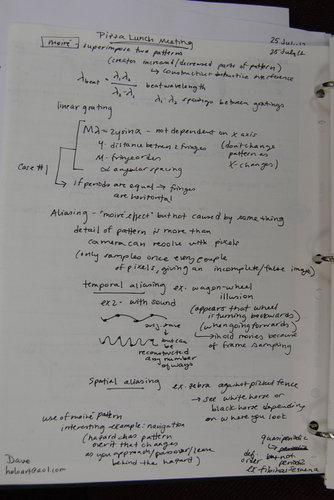 Pizza Lunch Meeting
25 July
moiré - superimpose two patterns
(creates increased/decreased parts of pattern)
↳ constructive/destructive interference
λbeat = λ1λ2 / λ2-λ1 beat wavelength
λ1, λ2 spacings between gratings
linear grating
Mλ = 2ysinα - not dependent on x axis
y. distance between 2 fringes (don't change
M - fringe order pattern as
α angular spacing x-changes)
Case #1
↳ if periods are equal → fringes
are horizontal
Aliasing - "moiré effect" but not caused by same thing
detail of pattern is more than
camera can resolve with pixels
(only samples once every couple
of pixels, giving an incomplete/false image)
temporal aliasing ex. wagon-wheel
illusion
ex2 - with sound (appears that wheel
is turning backwards)
(when going forwards)
orig. wave
but can
be
reconstructed
any number
of ways
movies because
of frame sampling
Spatial aliasing ex. zebra against picket fence
→ see white horse or
black horse depending
on where you look
use of moiré pattern
interesting example: navigation
(hazard has pattern
over it that changes
as you approach/pass over/leave
behind the hazard)
quasiperiodic
↳ periodic
def. but not
order periodic
Dave